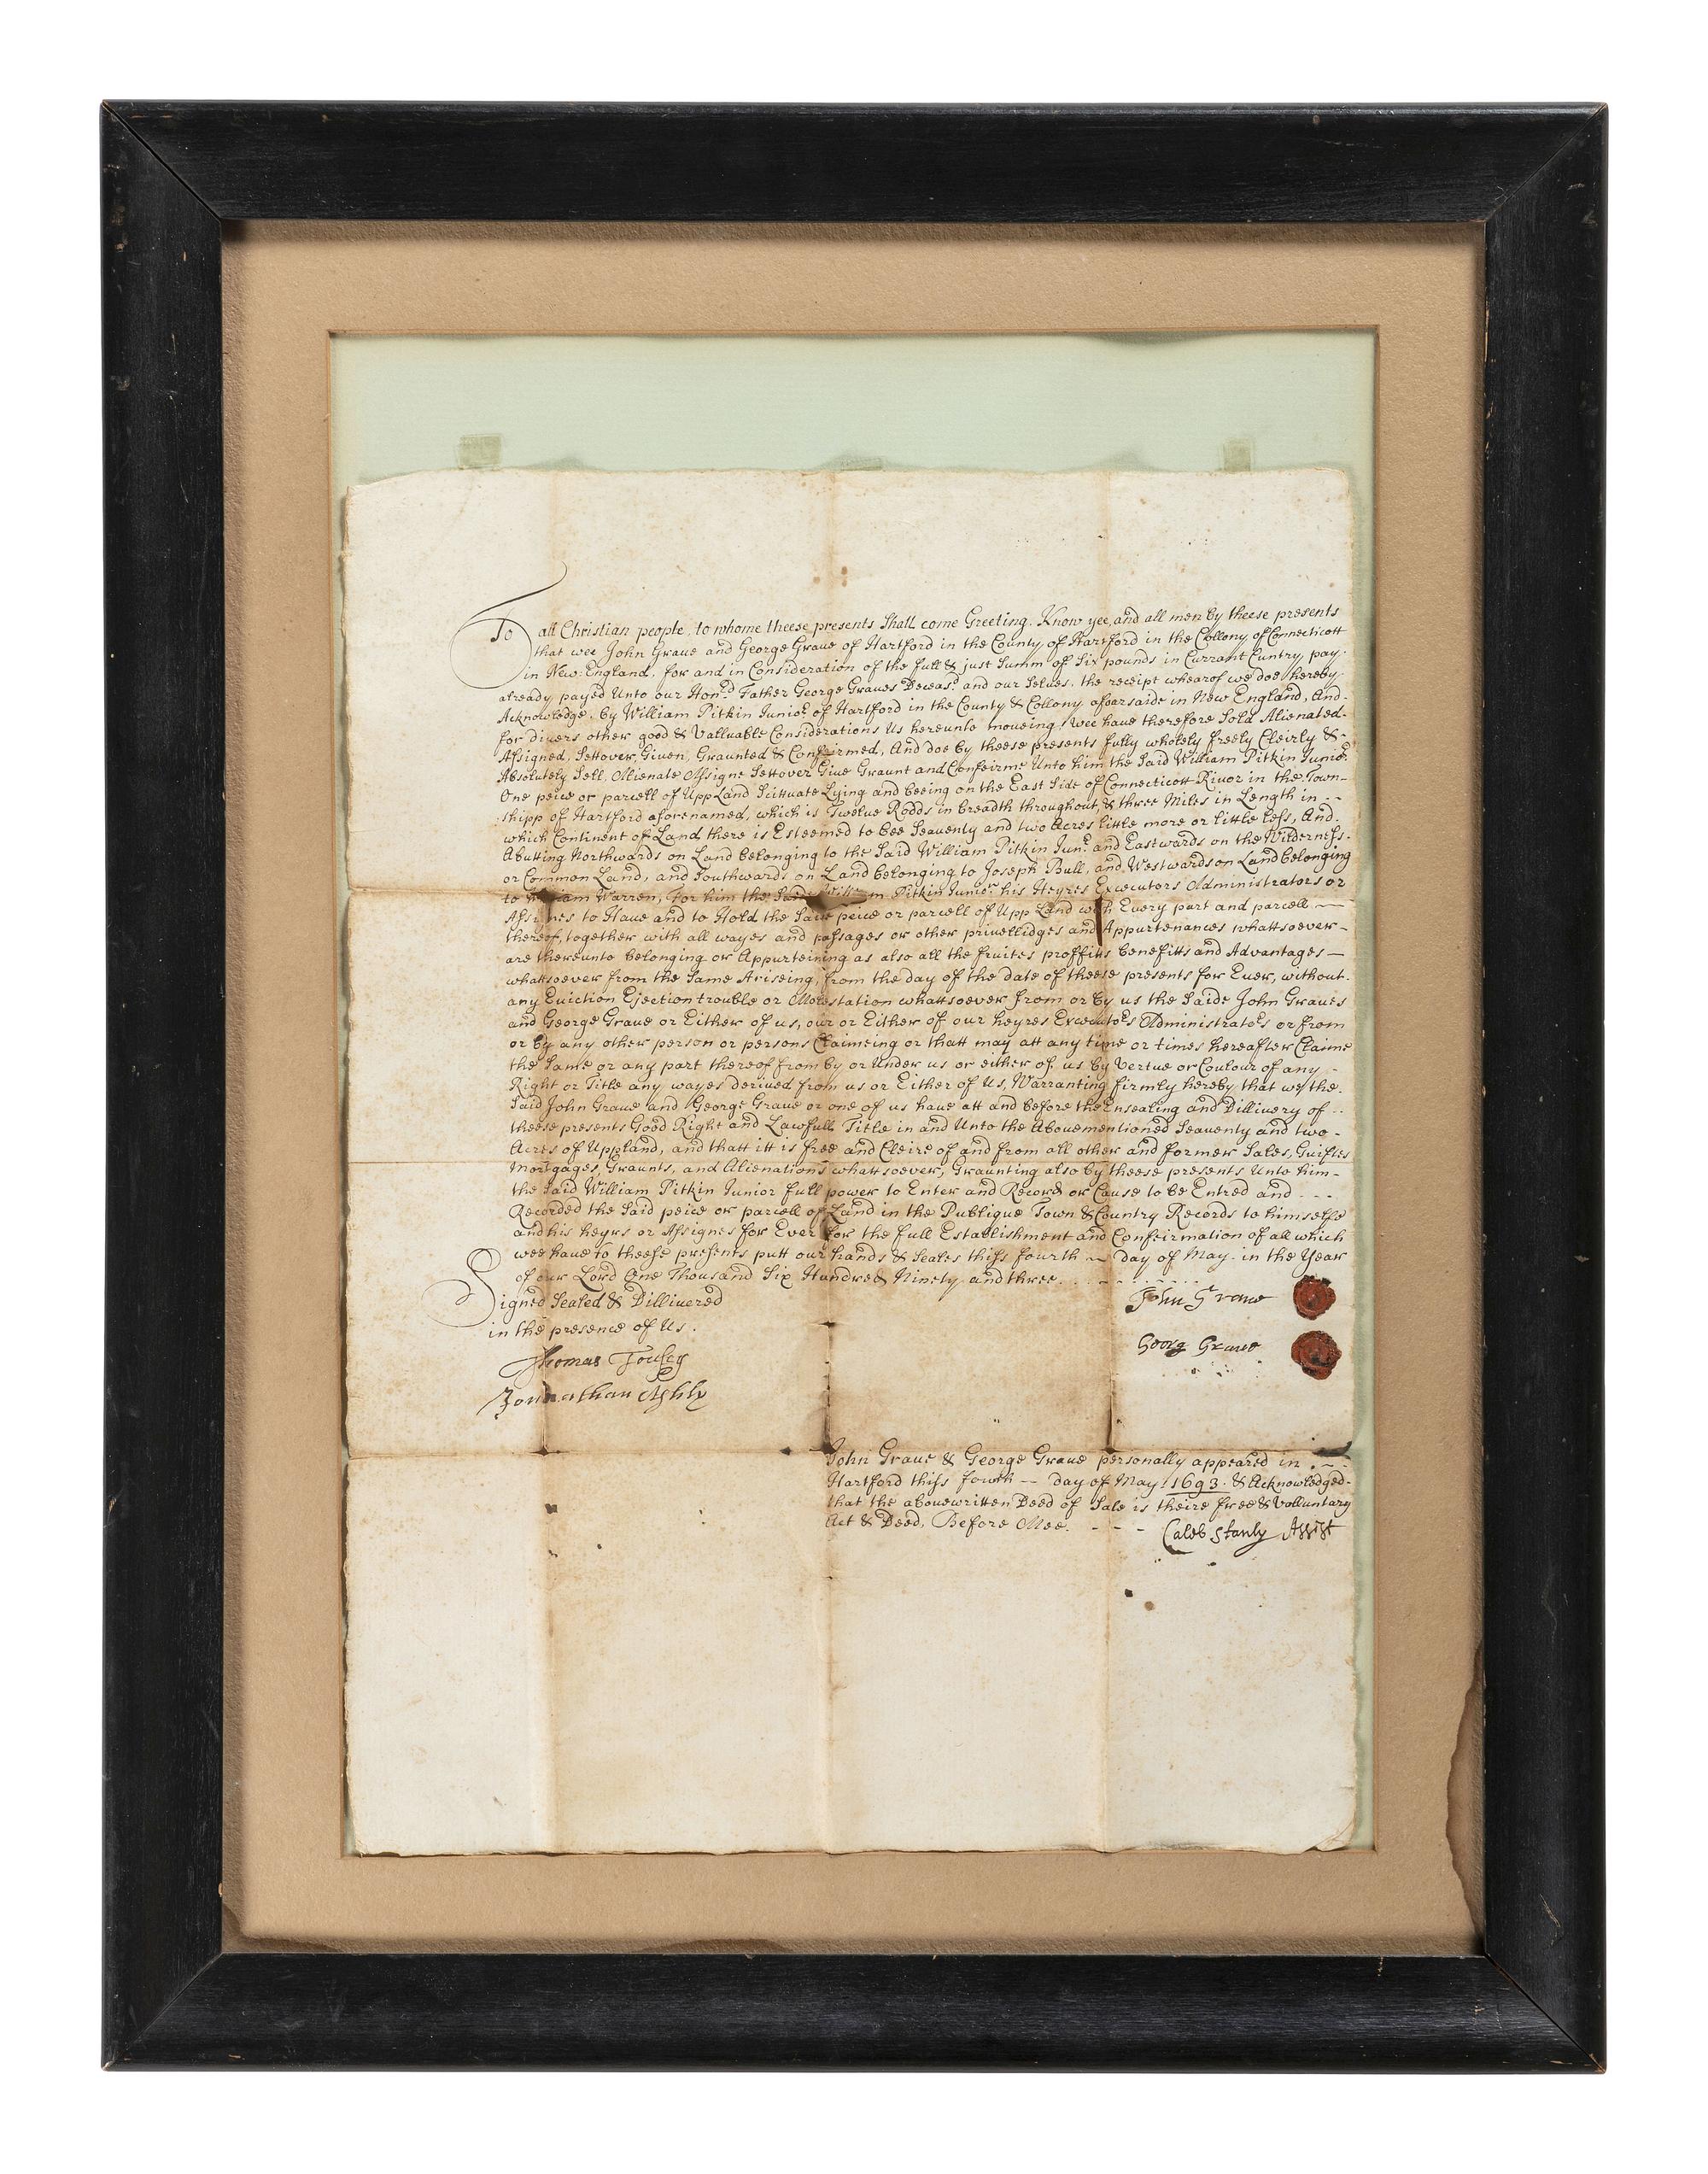 To all Christian people, to whome theese presents Shall come Greeting. Know yee, and all men by theese presents
that wee John Graue and George Graue of Hartford in the County of Hartford in the Collony of Connecticott
in New-England, for and in Consideration of the full & just Summ of Six pounds in Currant Cuntry pay.
already payed Unto our Honrd Father George Graues Deceasd and our Selues, the receipt whearof we doe hereby
Acknowledge, by William Pitkin Junior of Hartford in the County & Collony aforsaide in New England, And-
for divers other good & Valluable Considerations Us hereunto moueing. Wee haue therefore Sold Alienated-
Assigned, Settover, Given, Graunted & Confeirmed, And doe by theese presents fully wholely freely Cleirly &-
Absolutely Sell, Alienate Assigne Settover Giue Graunt and Confeirme Unto him the Said William Pitkin Junior
One peice or parcell of UppLand Scittuate Lying and beeing on the East Side of Connecticott River in the Town-
shipp of Hartford aforenamed, which is Twelue Rodds in breadth throughout & three Miles in Length in --
which Continent of Land there is Esteemed to bee Seauenty and two Acres little more or little less, And.
Abutting Northwards on Land belonging to the Said William Pitkin Junr and Eastwards on the Wilderness.
or Common Land, and Southwards on Land belonging to Joseph Bull, and Westwards on Land belonging
to William Warren, For him the Said William Pitkin Junior his Heyres Executors Administrators or
Assignes to Haue and to Hold the Said peice or parcell of Upp Land with Every part and parcell —
thereof, together with all wayes and passages or other priuelledges and Appurtenances whattsoever -
are thereunto belonging or Appurteining as also all the fruites proffitts benefitts and Advantages —
whattsoever from the Same Ariseing, from the day of the date of theese presents for Euer, without.
any Eviction Ejection trouble or Molestation whattsoever from or by us the Saide John Graues
and George Graue or Either of us, our or Either of our heyres Executors Administrators or from
or by any other person or persons Claimeing or thatt may att any time or times hereafter Claime
the Same or any part thereof from by or Under us or either of us by Vertue or Coulour of any -
Right or Title any wayes derived from us or Either of Us, Warranting firmly hereby that we the.
Said John Graue and George Graue or one of us haue att and before the Ensealing and Dillivery of ..
theese presents Good Right and Lawfull Title in and Unto the Abouementioned Seauenty and two -
Acres of Uppland, and thatt itt is free and Cleire of and from all other and former Sales, Guiftes
Mortgages, Graunts, and Alienations whattsoever, Graunting also by theese presents Unto him-
the Said William Pitkin Junior full power to Enter and Record or Cause to be Entred and . - -
Recorded the Said peice or parcell of Land in the Publique Town & Country Records to himselfe
and his heyrs or Assignes for Ever for the full Establishment and Confeirmation of all which
wee haue to theese presents putt our hands & Seales this fourth — day of May in the Year
of our Lord One Thousand Six Hundred Ninety and three. . . .
Signed Sealed & Dillivered
in the presence of Us.
John Graue
Georg Graue
Thomas Tousey
Jonnathan Ashly
John Graue & George Graue personally appeared in . - -
Hartford this fourth -- day of May 1693. & Acknowledged-
that the abouewritten Deed of Sale is theire free & Volluntary
Act & Deed, Before Mee. - - - Caleb Stanly Assist